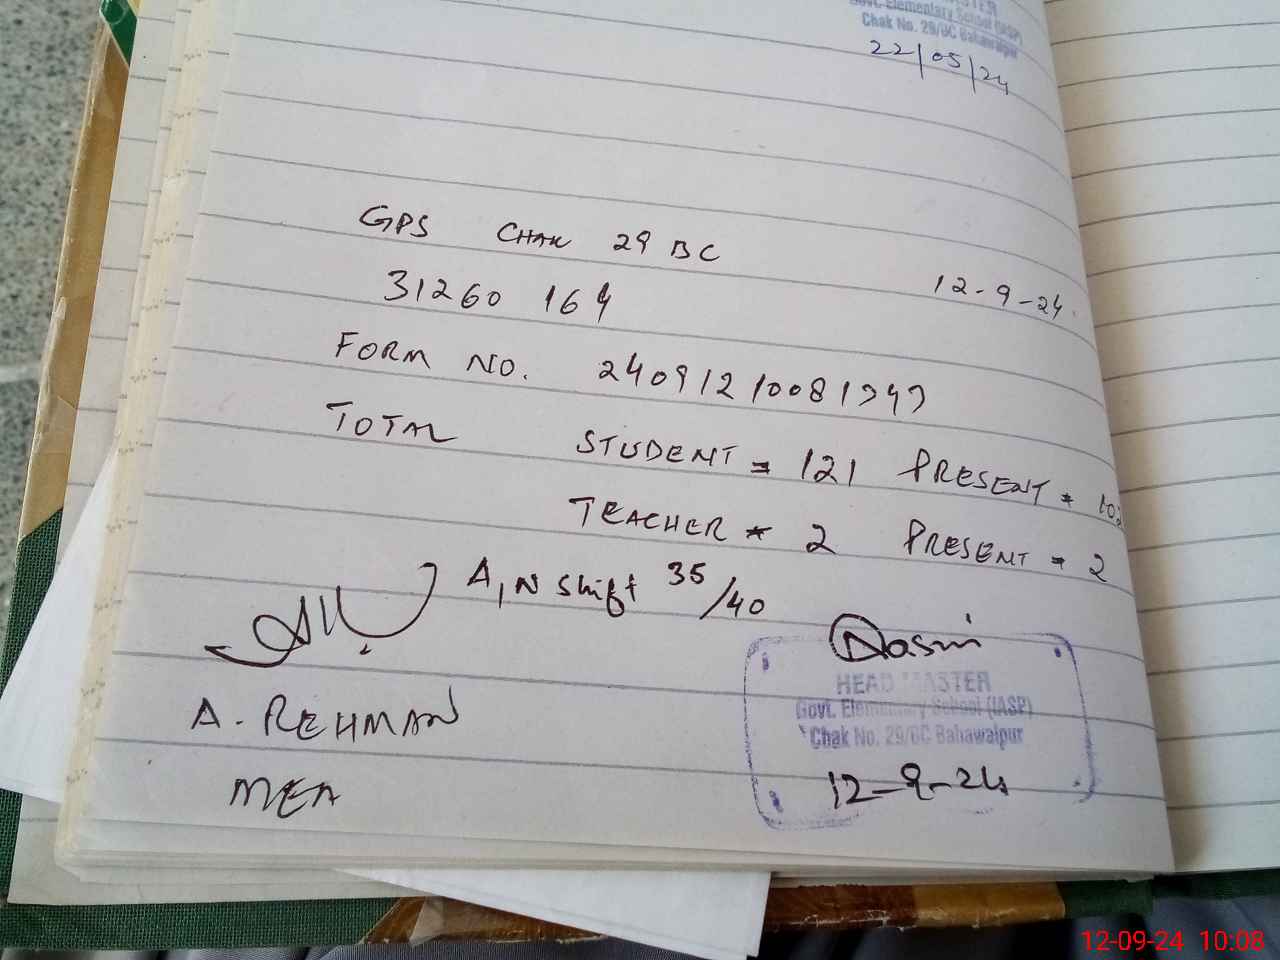 MASTER
Govt. Elementary School (IASP)
Chak No. 29/BC Bahawalpur
22/05/24
GPS CHAK 29 BC
12-9-24
31260 164
FORM NO. 24091210081747
TOTAL STUDENT = 121 PRESENT = 102
TEACHER = 2 PRESENT = 2
A,N Shift 35/40
A. REHMAN
MEA
Qasmi
HEAD MASTER
Govt. Elementary School (IASP)
Chak No. 29/BC Bahawalpur
12-9-24
12-09-24 10:08